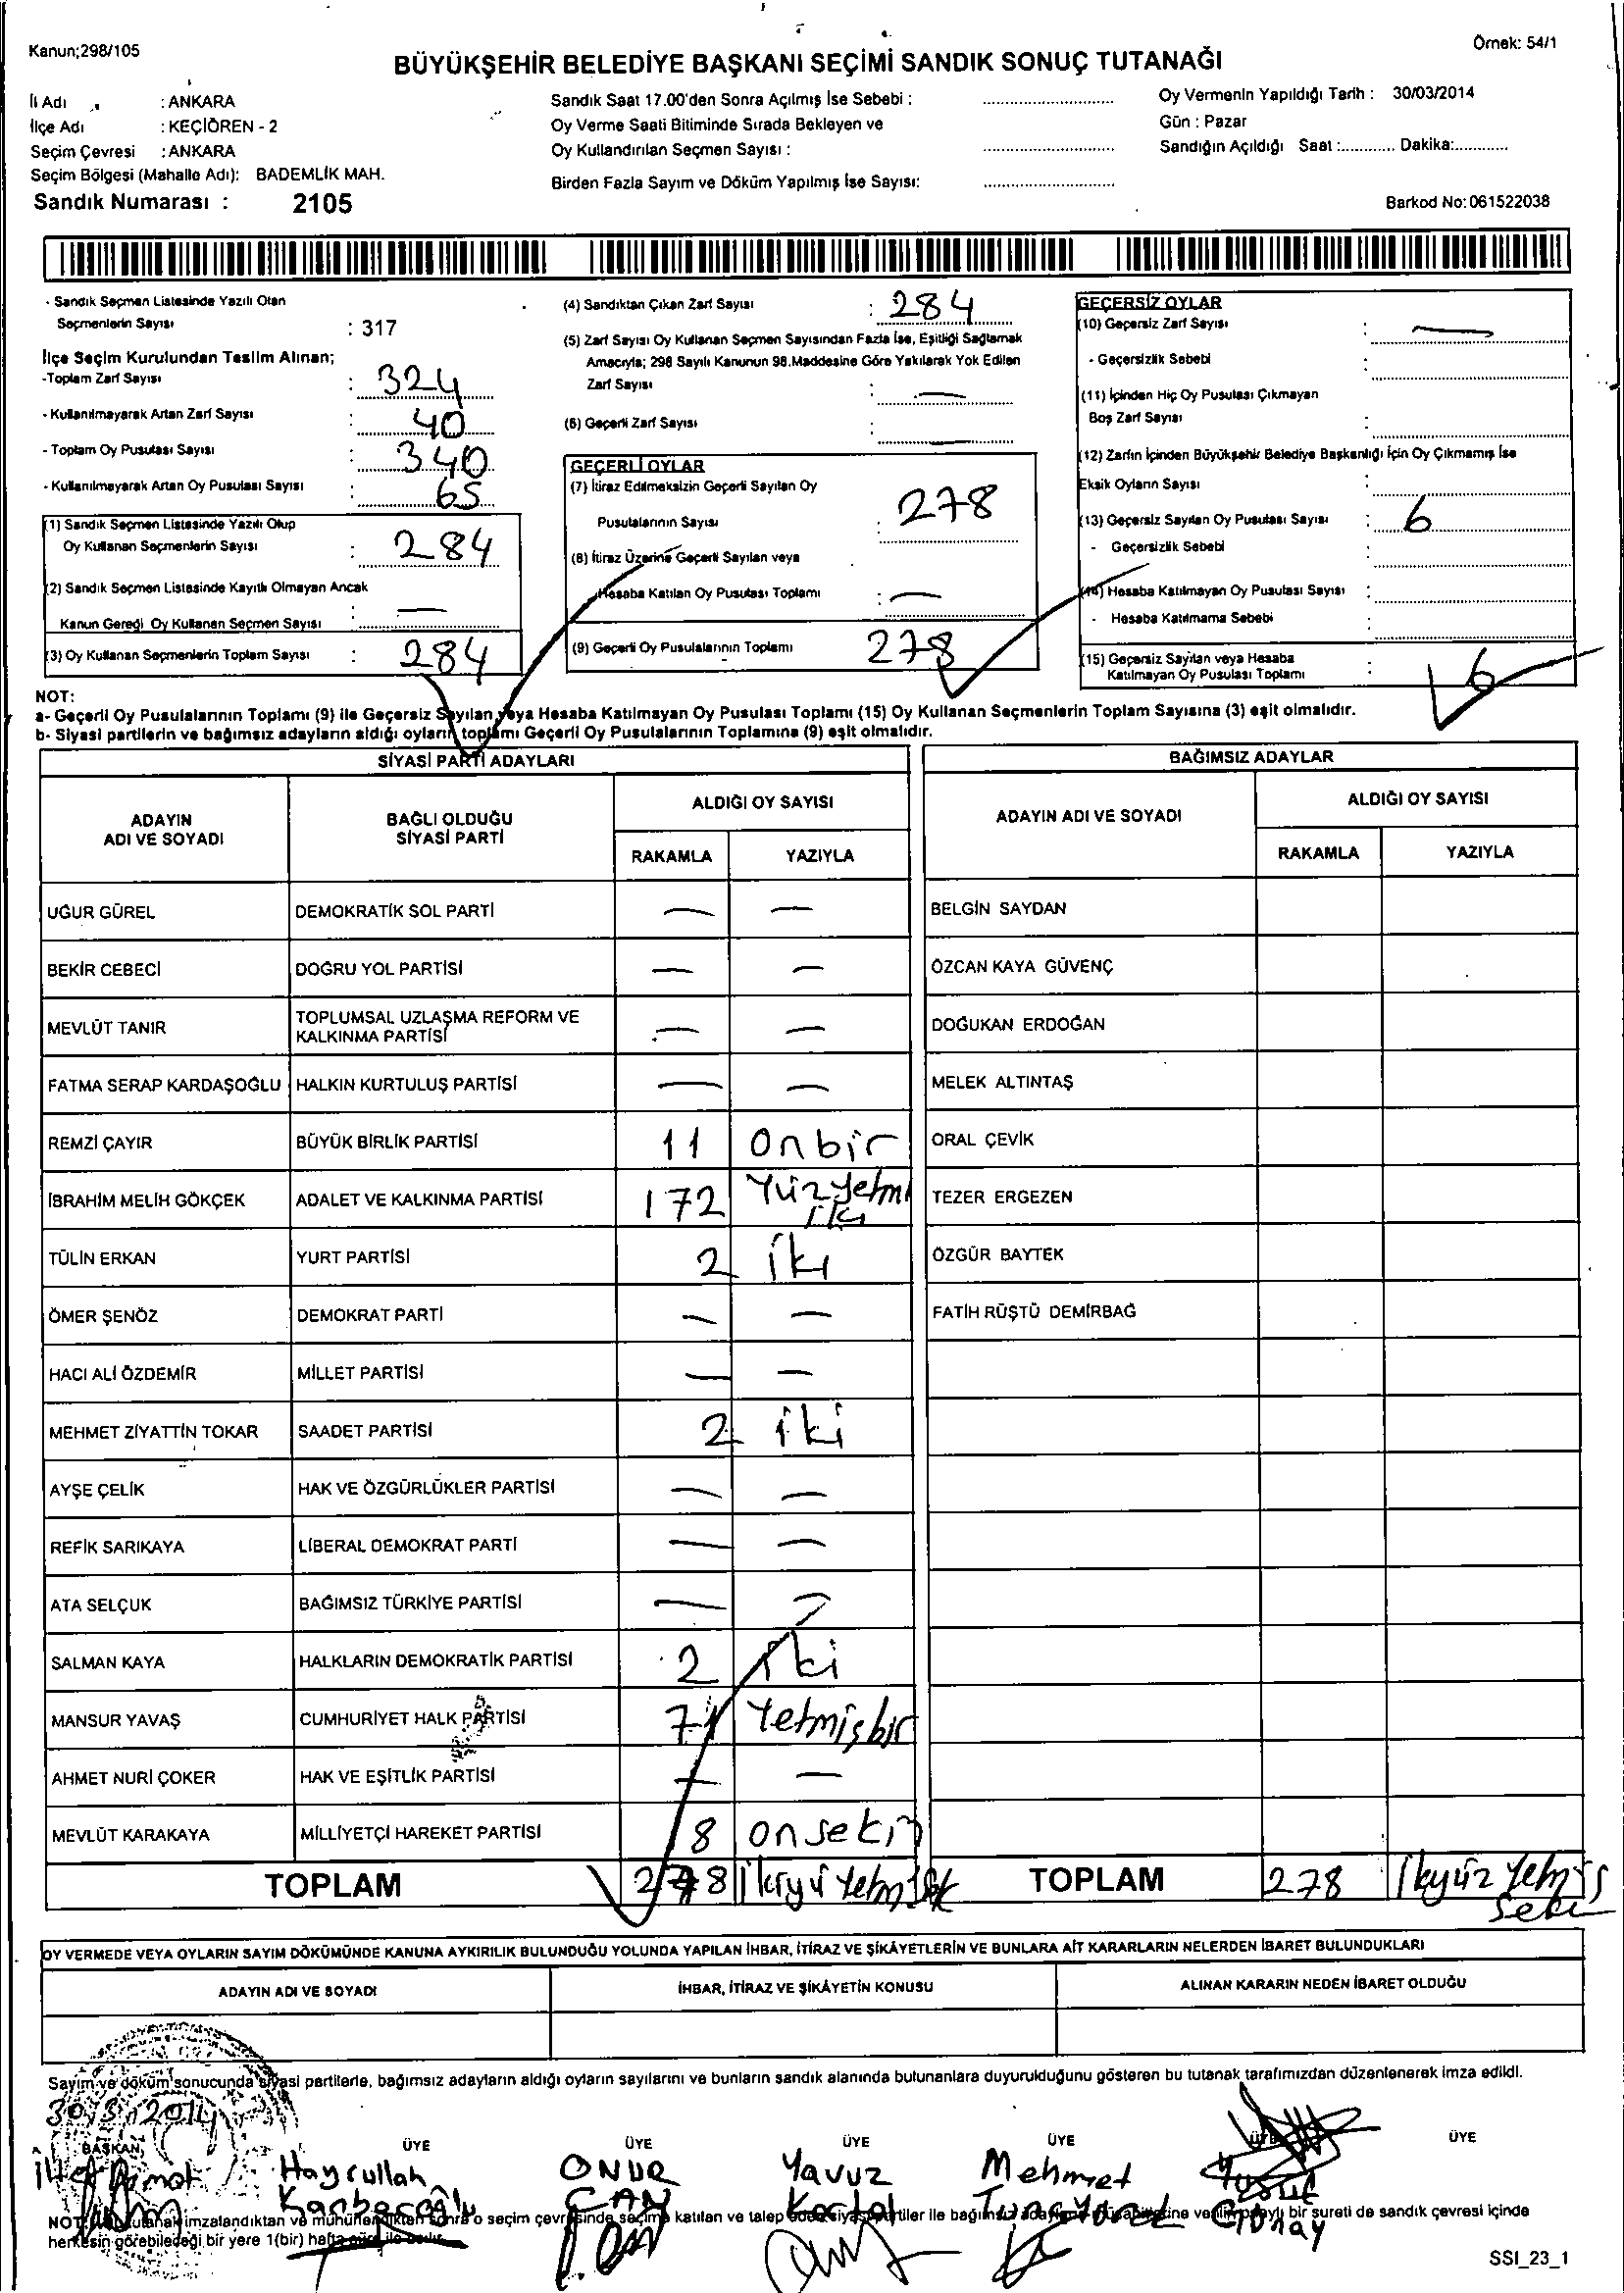 Kanun;298/105
Örnek: 54/1
BÜYÜKŞEHİR BELEDİYE BAŞKANI SEÇİMİ SANDIK SONUÇ TUTANAĞI
İl Adı : ANKARA
İlçe Adı : KEÇİÖREN - 2
Seçim Çevresi : ANKARA
Seçim Bölgesi (Mahalle Adı): BADEMLİK MAH.
Sandık Numarası : 2105
Sandık Saat 17.00'den Sonra Açılmış İse Sebebi :
Oy Verme Saati Bitiminde Sırada Bekleyen ve
Oy Kullandırılan Seçmen Sayısı :
Birden Fazla Sayım ve Döküm Yapılmış İse Sayısı:
Oy Vermenin Yapıldığı Tarih : 30/03/2014
Gün : Pazar
Sandığın Açıldığı Saat :............ Dakika:............
Barkod No:061522038
- Sandık Seçmen Listesinde Yazılı Olan
Seçmenlerin Sayısı : 317
İlçe Seçim Kurulundan Teslim Alınan;
-Toplam Zarf Sayısı : 324
- Kullanılmayarak Artan Zarf Sayısı : 40
- Toplam Oy Pusulası Sayısı : 340
- Kullanılmayarak Artan Oy Pusulası Sayısı : 65
(1) Sandık Seçmen Listesinde Yazılı Olup
Oy Kullanan Seçmenlerin Sayısı : 284
(2) Sandık Seçmen Listesinde Kayıtlı Olmayan Ancak
Kanun Gereği Oy Kullanan Seçmen Sayısı : —
(3) Oy Kullanan Seçmenlerin Toplam Sayısı : 284
(4) Sandıktan Çıkan Zarf Sayısı : 284
(5) Zarf Sayısı Oy Kullanan Seçmen Sayısından Fazla İse, Eşitliği Sağlamak
Amacıyla; 298 Sayılı Kanunun 98.Maddesine Göre Yakılarak Yok Edilen
Zarf Sayısı : —
(6) Geçerli Zarf Sayısı : —
GEÇERLİ OYLAR
(7) İtiraz Edilmeksizin Geçerli Sayılan Oy
Pusulalarının Sayısı : 278
(8) İtiraz Üzerine Geçerli Sayılan veya
Hesaba Katılan Oy Pusulası Toplamı : —
(9) Geçerli Oy Pusulalarının Toplamı 278
GEÇERSİZ OYLAR
(10) Geçersiz Zarf Sayısı : —
- Geçersizlik Sebebi :
(11) İçinden Hiç Oy Pusulası Çıkmayan
Boş Zarf Sayısı :
(12) Zarfın İçinden Büyükşehir Belediye Başkanlığı İçin Oy Çıkmamış İse
Eksik Oyların Sayısı :
(13) Geçersiz Sayılan Oy Pusulası Sayısı : 6
- Geçersizlik Sebebi
(14) Hesaba Katılmayan Oy Pusulası Sayısı :
- Hesaba Katılmama Sebebi :
(15) Geçersiz Sayılan veya Hesaba
Katılmayan Oy Pusulası Toplamı : 6
NOT:
a- Geçerli Oy Pusulalarının Toplamı (9) ile Geçersiz Sayılan veya Hesaba Katılmayan Oy Pusulası Toplamı (15) Oy Kullanan Seçmenlerin Toplam Sayısına (3) eşit olmalıdır.
b- Siyasi partilerin ve bağımsız adayların aldığı oyların toplamı Geçerli Oy Pusulalarının Toplamına (9) eşit olmalıdır.
SİYASİ PARTİ ADAYLARI
BAĞIMSIZ ADAYLAR
ADAYIN
ADI VE SOYADI
BAĞLI OLDUĞU
SİYASİ PARTİ
ALDIĞI OY SAYISI
RAKAMLA YAZIYLA
ADAYIN ADI VE SOYADI
ALDIĞI OY SAYISI
RAKAMLA YAZIYLA
UĞUR GÜREL DEMOKRATİK SOL PARTİ — — BELGİN SAYDAN
BEKİR CEBECİ DOĞRU YOL PARTİSİ — — ÖZCAN KAYA GÜVENÇ
MEVLÜT TANIR TOPLUMSAL UZLAŞMA REFORM VE
KALKINMA PARTİSİ — — DOĞUKAN ERDOĞAN
FATMA SERAP KARDAŞOĞLU HALKIN KURTULUŞ PARTİSİ — — MELEK ALTINTAŞ
REMZİ ÇAYIR BÜYÜK BİRLİK PARTİSİ 11 onbir ORAL ÇEVİK
İBRAHİM MELİH GÖKÇEK ADALET VE KALKINMA PARTİSİ 172 Yüzyetmi iki TEZER ERGEZEN
TÜLİN ERKAN YURT PARTİSİ 2 iki ÖZGÜR BAYTEK
ÖMER ŞENÖZ DEMOKRAT PARTİ — — FATİH RÜŞTÜ DEMİRBAĞ
HACI ALİ ÖZDEMİR MİLLET PARTİSİ — —
MEHMET ZİYATTİN TOKAR SAADET PARTİSİ 2 iki
AYŞE ÇELİK HAK VE ÖZGÜRLÜKLER PARTİSİ — —
REFİK SARIKAYA LİBERAL DEMOKRAT PARTİ — —
ATA SELÇUK BAĞIMSIZ TÜRKİYE PARTİSİ — —
SALMAN KAYA HALKLARIN DEMOKRATİK PARTİSİ 2 iki
MANSUR YAVAŞ CUMHURİYET HALK PARTİSİ 71 Yetmişbir
AHMET NURİ ÇOKER HAK VE EŞİTLİK PARTİSİ — —
MEVLÜT KARAKAYA MİLLİYETÇİ HAREKET PARTİSİ 18 onsekiz
TOPLAM 278
TOPLAM 278 ikyüz yetmiş
OY VERMEDE VEYA OYLARIN SAYIM DÖKÜMÜNDE KANUNA AYKIRILIK BULUNDUĞU YOLUNDA YAPILAN İHBAR, İTİRAZ VE ŞİKÂYETLERİN VE BUNLARA AİT KARARLARIN NELERDEN İBARET BULUNDUKLARI
ADAYIN ADI VE SOYADI İHBAR, İTİRAZ VE ŞİKÂYETİN KONUSU ALINAN KARARIN NEDEN İBARET OLDUĞU
Sayım ve döküm sonucunda siyasi partilerle, bağımsız adayların aldığı oyların sayılarını ve bunların sandık alanında bulunanlara duyurulduğunu gösteren bu tutanak tarafımızdan düzenlenerek imza edildi.
30/3/2014
BAŞKAN ÜYE ÜYE ÜYE ÜYE ÜYE ÜYE
Hayrullah ONUR Yavuz Mehmet Yusuf
CAN Kartal Günay
NOT: tutanak imzalandıktan ve mühürlendikten sonra o seçim çevresinde seçime katılan ve talep eden siyasi partiler ile bağımsız adayların müşahitlerine verilir. onaylı bir sureti de sandık çevresi içinde
herkesin görebileceği bir yere 1(bir) hafta süre ile asılır.
SSI_23_1